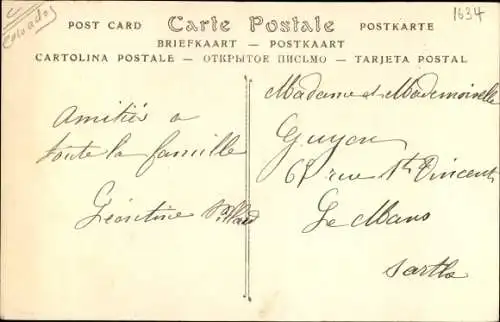 Colorado
1634
POST CARD Carte Postale POSTKARTE
BRIEFKAART — POSTKAART
CARTOLINA POSTALE — ОТКРЫТОЕ ПИСЬМО — TARJETA POSTAL
Amitiés a
toute la famille
Léontine
Madame et Mademoiselle
Guyon
rue St Vincent
Le Mans
Sarthe